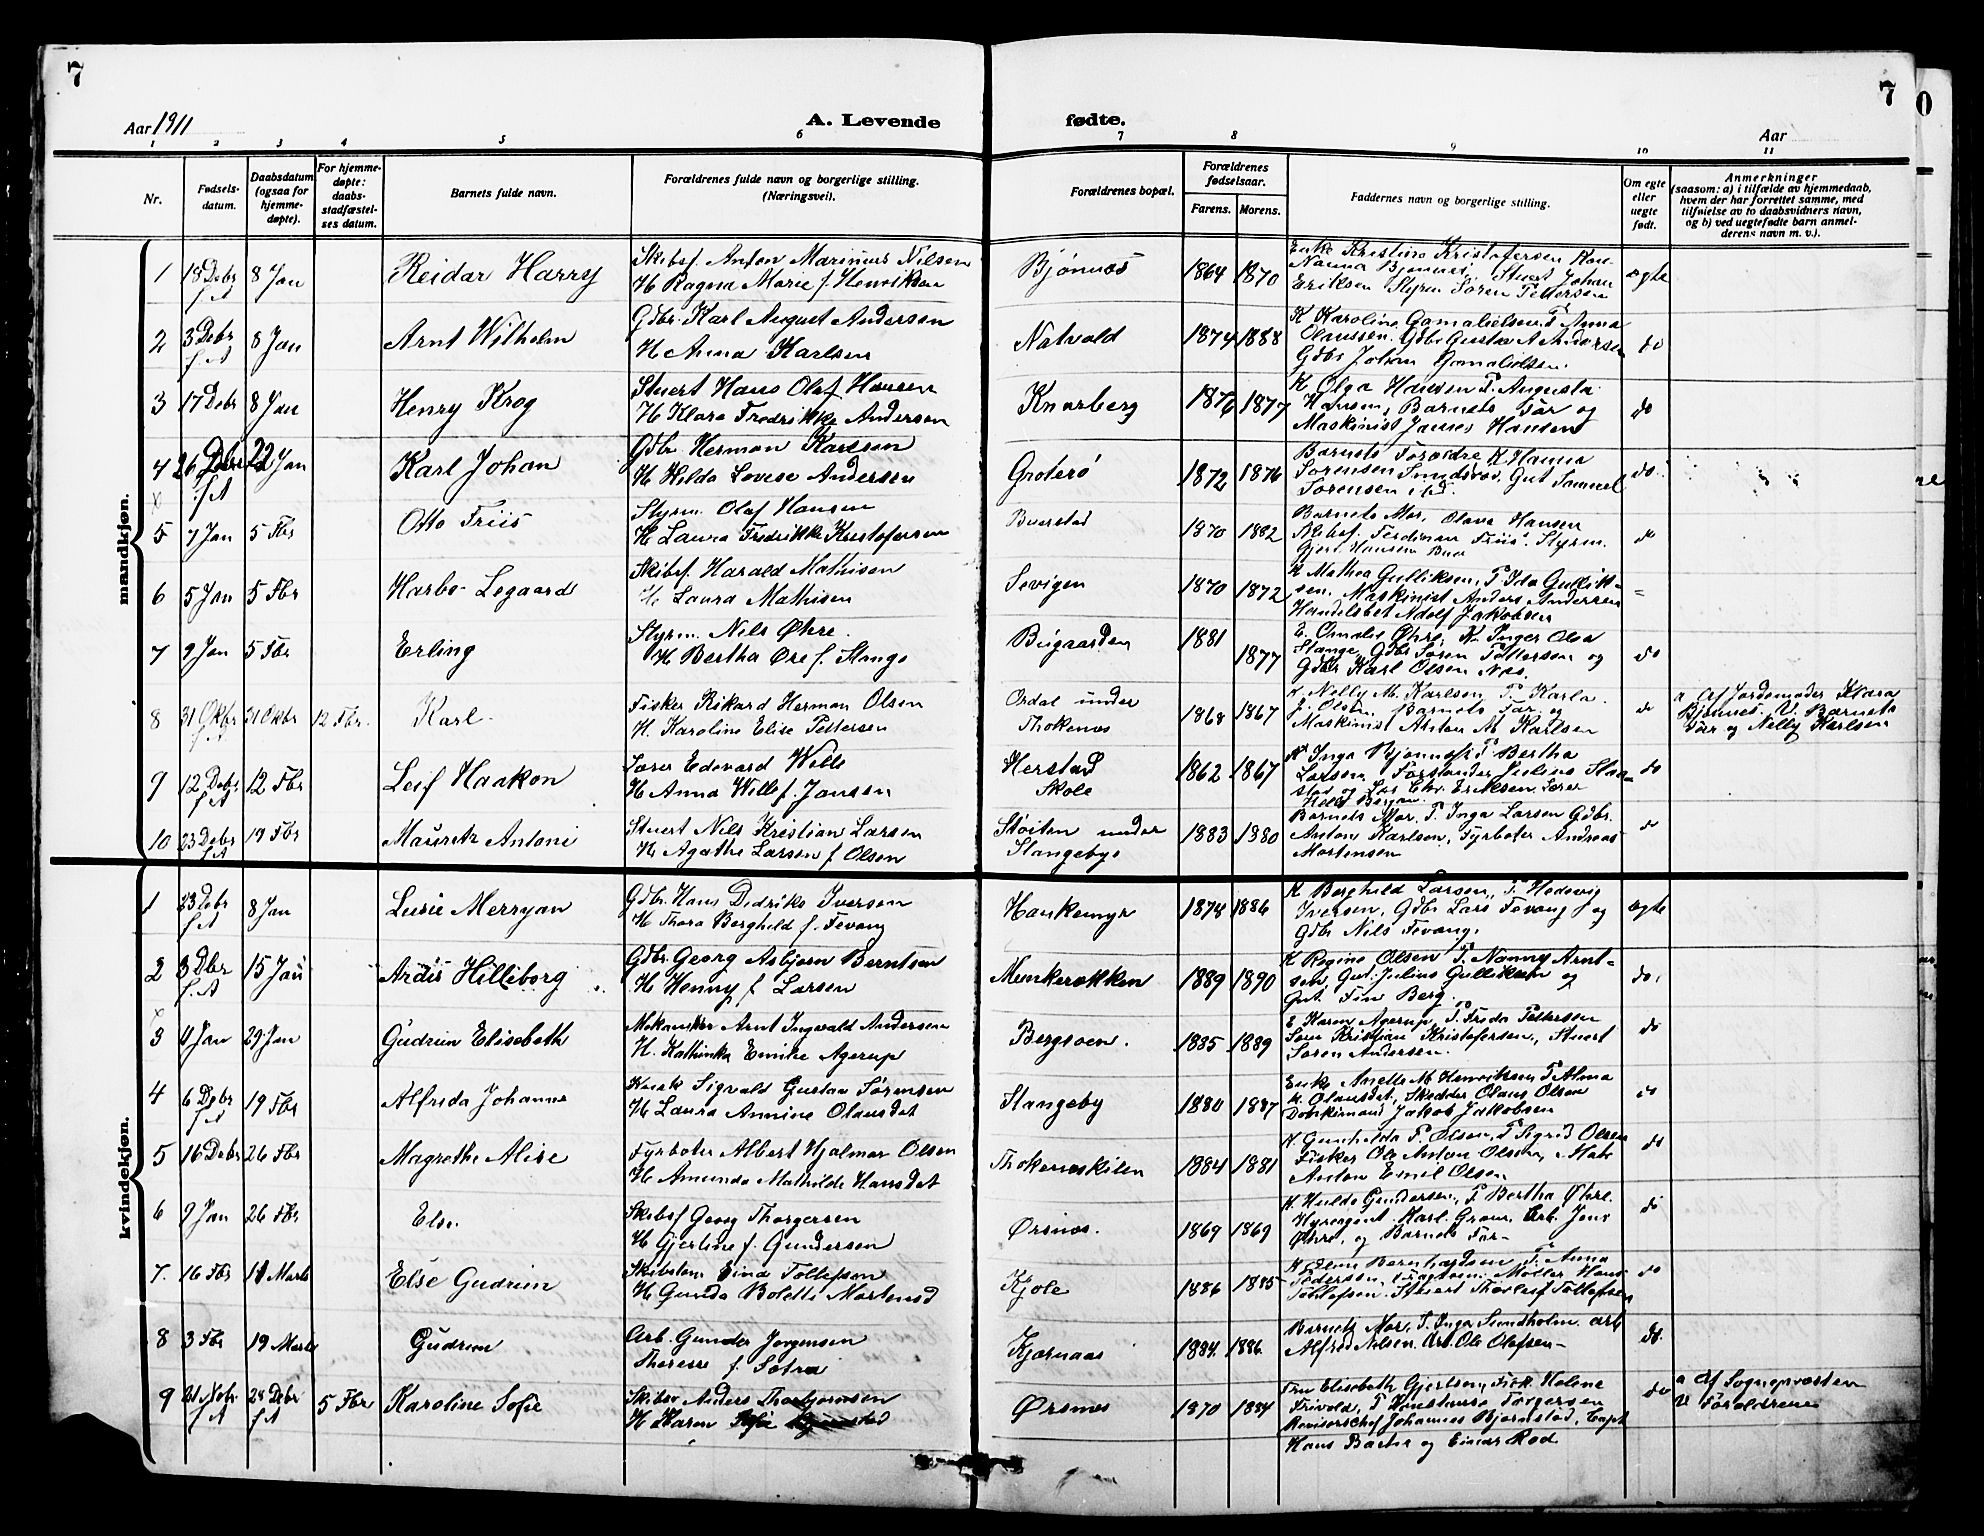 7
7
Aar 1911
A. Levende
fødte.
Aar
1 2 3 4 5 6 7 8 9 10 11
Nr.
Fødsels-
datum.
Daabsdatum
(ogsaa for
hjemme-
døpte).
For hjemme-
døpte:
daabs-
stadfæstel-
ses datum.
Barnets fulde navn.
Forældrenes fulde navn og borgerlige stilling.
(Næringsveil).
Forældrenes bopæl.
Forældrenes
fødselsaar.
Farens. Morens.
Faddernes navn og borgerlige stilling.
Om egte
eller
uegte
født.
Anmerkninger
(saasom: a) i tilfælde av hjemmedaab,
hvem der har forrettet samme, med
tilføielse av to daabsvidners navn,
og b) ved uegtefødte barn anmel-
derens navn m. v.).
mandkjøn.
1 18 Debr f.A 8 Jan Reidar Harry
Skibsf. Anton Marinius Nilsen
H Ragna Marie f. Henriksen
Bjønnæs 1864 1870
Enke Kristina Kristofersen Kon
Nanna Bjønnes, Stuert Johan
Eriksen Styrm Søren Pettersen
ægte
2 3 Debr f.A 8 Jan Arnt Wilhelm
Gdbr. Karl August Andersen
H Anna Karlsen
Natvald 1874 1888
K Karoline Gamalielsen, P. Anna
Olaussen. Gdbr Gustav A Andersen
Gdbr Johan Gamalielsen.
do
3 17 Debr 8 Jan Henry Krog
Stuert Hans Olaf Hansen
H Klara Fredrikke Andersen
Knarberg 1876 1877
K Olga Hansen P. Augusta
Hansen, Barnets Far og
Maskinist James Hansen
do
4 26 Debr f.A 22 Jan Karl Johan
Gdbr Herman Karlsen
H Hilda Lovise Andersen
Groterø 1872 1876
Barnets Forældre K Hanna
Sørensen Sundsvas, Gut Samuel
Sørensen
do
5 7 Jan 5 Fbr Otto Friis
Styrm. Olaf Hansen
H Laura Fredrikke Kristofersen
Buerstad 1870 1882
Barnets Mor, Olava Hansen
Skibsf. Ferdinan Friis, Styrm.
Gjert Hansen Buer
do
6 5 Jan 5 Fbr Harbo Legaard
Skibsf. Harald Mathisen
H. Laura Mathisen
Sevigen 1870 1872
K Mathea Gulliksen, P. Ida Gullik-
sen, Maskinist Anders Andersen
Handelsbet Adolf Jakobsen
7 9 Jan 5 Fbr Erling
Styrm. Nils Øhre.
H Bertha Øre f. Stange
Buigaarden 1881 1877
E. Amalie Øhre, K. Inger Olea
Stange, Gdbr Søren Pettersen og
Gdbr Karl Olsen Næs.
do
8 31 Okbr f.A 31 Okbr 12 Fbr. Karl
Fisker Rikard Herman Olsen
H. Karoline Elise Pettersen
Ordal under
Thokenes 1868 1867
K Nelly M. Karlsen, P. Karla
J. Olsen, Barnets Far, og
Maskinist Anton M. Karlsen
do
a Af Jordemoder Klara
Bjønnes. V. Barnets
Far og Nelly Karlsen
9 12 Debr f.A 12 Fbr Leif Haakon
Lærer Edevard Wille
H Anna Wille f. Jansen
Herstad
Skole 1862 1867
K Inga Bjønnes P. Bertha
Larsen, Forstander Julius
stad og Los Chr. Eriksen. Lærer
do
10 23 Debr f.A 19 Fbr Mauretz Antoni
Stuert Nils Kristian Larsen
H. Agathe Larsen f Olsen
Støiten under
Stangeby 1883 1880
Barnets Mor, P. Inga Larsen Gdbr.
Anton Karlsen, Fyrbøter Andreas
Mortensen
do
kvindekjøn.
1 23 Debr f.A 8 Jan Lusie Merryan
Gdbr. Hans Dedriks Iversen
H Thora Berghild f. Fevang
Haukemyr 1874 1886
K Berghild Larsen, P. Hedevig
Iversen, Gdbr Lars Fevang og
Gdbr Nils Fevang.
ægte
2 3 Dbr f.A 15 Jan Ardis Hilleborg
Gdbr. Georg Asbjørn Berntsen
H Henny f Larsen
Munkerækken 1889 1890
K Regine Olsen P. Nanny Arnt-
sen, Gut. Julius Gulliksen og
Gut. Fin Berg.
do.
3 4 Jan 29 Jan Gudrun Elisebeth
Mekaniker Arnt Ingvald Andersen
H. Kathinka Emilie Agerup
Bergsoen. 1885 1889
E Karen Agerup, P. Freda Pettersen
Søm Kristian Kristofersen, Stuert
Søren Andersen.
do
4 6 Debr f.A 19 Fbr Alfreda Johanne
Kusk Sigvald Gustav Sørensen
H Laura Annine Olausdat
Stangeby 1880 1887
Enke Anette M. Henriksen P Alma
K. Olausdat, Skredder Olaus Olsen
Donkimand Jakob Jakobsen
do
5 16 Debr 26 Fbr Magrethe Alise
Fyrbøter Albert Hjalmar Olsen
H Amunda Mathilde Hansdat
Thokenæskilen 1884 1881
K. Gunhilda P. Olsen, P Sigrid Olsen
Fisker Ole Anton Olsen, Mate
Anton Emil Olsen
do
6 9 Jan 26 Fbr Else
Skibsf Georg Thorgersen
H Gjerline f. Gundersen
Ørsnes. 1869 1869
K. Hulda Gundersen, P. Bertha Øhre.
Hyreagent Karl Graus, Arb. Jens
Øhre, og Barnets Far-
do
7. 16 Fbr 11 Marts Else Gudrun
Einar Tollefsen
H Gunda Boletti Mortensd
Kjøle 1886 1885
Bernhardsen, P. Anna
Pedersen, Møller Hans
Tollefsen. Stuert Thorleif Tollefsen
do
8 3 Fbr 19 Marts Gudrun
Arb. Gunder Jørgensen
Therese f. Sotra
Kjærnaas 1884. 1886.
Barnets Mor, P. Inga Sundholm. arb
Alfred Nilsen. Arb. Ole Olafsen-
do.
9 21 Nobr f.A 28 Debr f.A 5 Fbr Karoline Sofie
Skibsr Anders Thorbjørnsen
H Karen Sofie
Ørsnes 1870 1884
Fru Elisebeth Gjertsen, Frøk. Helene
Trivold, P. Konstanse Torgersen
Revisorschef Johannes Bjørnstad, Capt
Hans Barth og Einar Rød.
do
a Af Sognepresten
V Forældrene